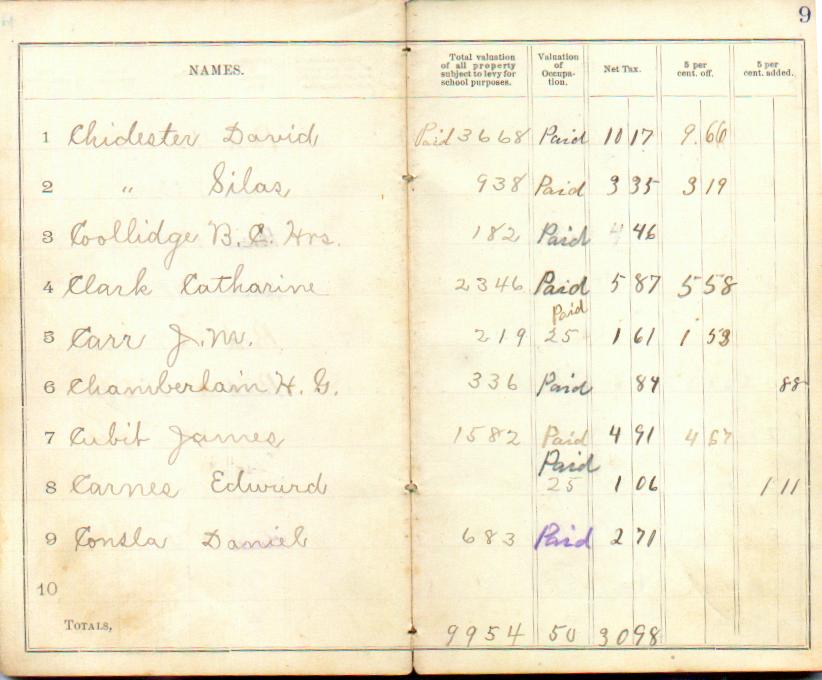 9
NAMES. Total valuation of all property subject to levy for school purposes. Valuation of Occupa- tion. Net Tax. 5 per cent. off. 5 per cent. added.
1 Chidester David Paid 3668 Paid 10 17 9.66
2 " Silas 938 Paid 3 35 3 19
3 Coollidge B. C. Hrs. 182 Paid 46
4 Clark Catharine 2346 Paid 5 87 5 58
Paid
5 Carr J. M. 219 25 1 61 1 53
6 Chamberlain H. G. 336 Paid 84 88
7 Cubit James 1582 Paid 4 91 4 67
Paid
8 Carnes Edwurd 25 1 06 1 11
9 Consla Daniel 683 Paid 2 71
10
TOTALS, 9954 50 30 98